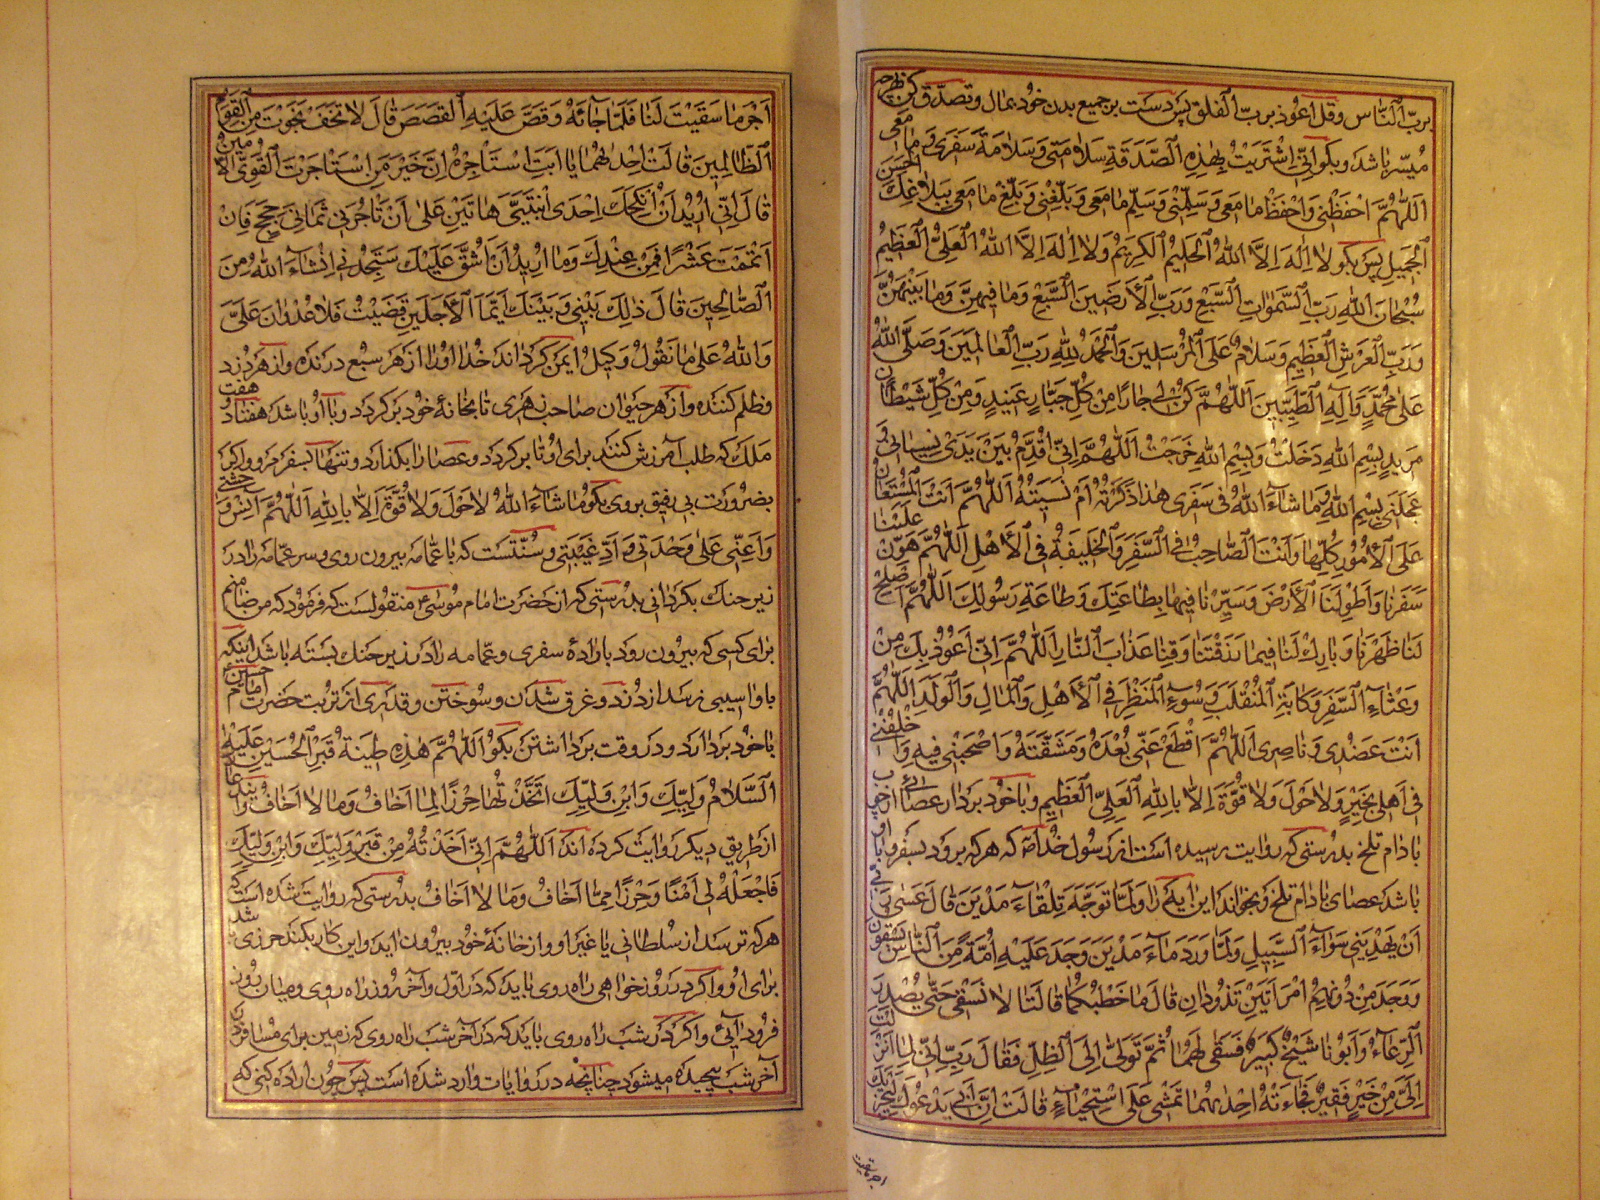 بربّ الناس وقل اعوذ بربّ الفلق پس دست بر جمیع بدن خود بمال و تصدّق کن بهرچه
میسّر باشد و بکو انّی اشتریت بهذه الصّدقة سلامتی و سلامة سفری و ما معی
اللّهمّ احفظنی و احفظ ما معی و سلّمنی و سلّم ما معی و بلّغنی و بلّغ ما معی ببلاغک الحسن
الجمیل پس بکو لا اله الّا اللّه الحلیم الکریم و لا اله الّا اللّه العلیّ العظیم
سبحان اللّه ربّ السّموات السّبع و ربّ الارضین السّبع و ما فیهنّ و ما بینهنّ
و ربّ العرش العظیم و سلام علی المرسلین و الحمد للّه ربّ العالمین و صلّی اللّه
علی محمّد و آله الطّیّبین اللّهمّ کن لی جارا من کلّ جبّار عنید و من کلّ شیطان
مرید بسم اللّه دخلت و بسم اللّه خرجت اللّهمّ انّی اقدّم بین یدی نسیانی و
عجلتی بسم اللّه و ما شاء اللّه فی سفری هذا ذکرته ام نسیته اللّهمّ انت المستعان
علی الامور کلّها و انت الصّاحب فی السّفر و الخلیفة فی الاهل اللّهمّ هوّن علینا
سفرنا و اطو لنا الارض و سیّرنا فیها بطاعتک و طاعة رسولک اللّهمّ اصلح
لنا ظهرنا و بارک لنا فیما رزقتنا و قنا عذاب النّار اللّهمّ انّی اعوذ بک من
وعثاء السّفر و کابة المنقلب و سوء المنظر فی الاهل و المال و الولد اللّهمّ
انت عضدی و ناصری اللّهمّ اقطع عنّی بعده و مشقّته و اصحبنی فیه و اخلفنی
فی اهلی بخیر و لا حول و لا قوّة الّا باللّه العلیّ العظیم و با خود بردار عصائی از چوب
بادام تلخ بدرستی که روایت رسیده است از رسول خدا ص که هر که برود بسفر و با او
باشد عصای بادام تلخ و بخواند این آیه را و لمّا توجّه تلقاء مدین قال عسی ربّی
ان یهدینی سواء السّبیل و لمّا ورد ماء مدین وجد علیه امّة من النّاس یسقون
و وجد من دونهم امراتین تذودان قال ما خطبکما قالتا لا نسقی حتّی یصدر
الرّعاء و ابونا شیخ کبیر فسقی لهما ثمّ تولّی الی الظّلّ فقال ربّ انّی لما انزلت
الیّ من خیر فقیر فجاءته احدیهما تمشی علی استحیاء قالت انّ ابی یدعوک لیجزیک
اجر ما سقیت
اجر ما سقیت لنا فلمّا جائه و قصّ علیه القصص قال لا تخف نجوت من القوم
الظّالمین قالت احدیهما یا ابت استاجره انّ خیر من استاجرت القویّ الامین
قال انّی ارید ان انکحک احدی ابنتیّ هاتین علی ان تاجرنی ثمانی حجج فان
اتممت عشرا فمن عندک و ما ارید ان اشقّ علیک ستجدنی انشاء اللّه من
الصّالحین قال ذلک بینی و بینک ایّما الاجلین قضیت فلا عدوان علیّ
و اللّه علی ما نقول وکیل ایمن کرداند خدا او را از هر سبع درنده و از هر دزد
و ظلم کننده و از هر حیوان صاحب زهری تا بخانهٔ خود برکردد و با او باشد هفتاد و هفت
ملک که طلب آمرزش کنند برای او تا برکردد و عصا را بکذارد و تنها بسفر مرو و اکر
بضرورت بی رفیق بروی بکو ما شاء اللّه لا حول و لا قوّة الّا باللّه اللّهمّ آنس وحشتی
و اعنّی علی وحدتی و ادّ غیبتی و سنّتست که با عمامه بیرون روی و سر عمّامه را در
زیر حنک بکردانی بدرستی که از حضرت امام موسی ع منقولست که فرمود که من ضامنم
برای کسی که بیرون رود با ارادهٔ سفری و عمّامه را در زیر حنک بسته باشد اینکه
باو آسیبی نرسد از دزد و غرق شدن و سوختن و قدری از تربت حضرت امام حسین ع
با خود بردارد و در وقت برداشتن بکو اللّهمّ هذه طینة قبر الحسین علیه
السّلام ولیّک و ابن ولیّک اتّخذتها حرزا لما اخاف و ما لا اخاف و اینک
از طریق دیکر روایت کرده اند اللّهمّ انّی اخذته من قبر ولیّک و ابن ولیّک
فاجعله لی امنا و حرزا ممّا اخاف و ما لا اخاف بدرستی که روایت شده است که
هر که ترسد از سلطانی یا غیر او و از خانهٔ خود بیرون اید و این کار بکند حرزی باشد
برای او و اکر در روز خواهی راه روی باید که در اول و آخر روز راه روی و میان روز
فرود آیی و اکر در شب راه روی باید که در آخر شب راه روی که زمین برای مسافر در
آخر شب پیچیده میشود چنانچه در روایات وارد شده است پس چون اراده کنی که